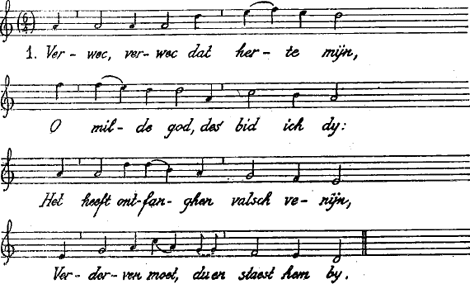 1. Ver - wec, ver - wec dat her - te mijn,
O mil - de god, des bid ich dy:
Het heeft ont - fan - ghen valsch ve - nijn,
Ver - der - ven moet, du en staest hem by.